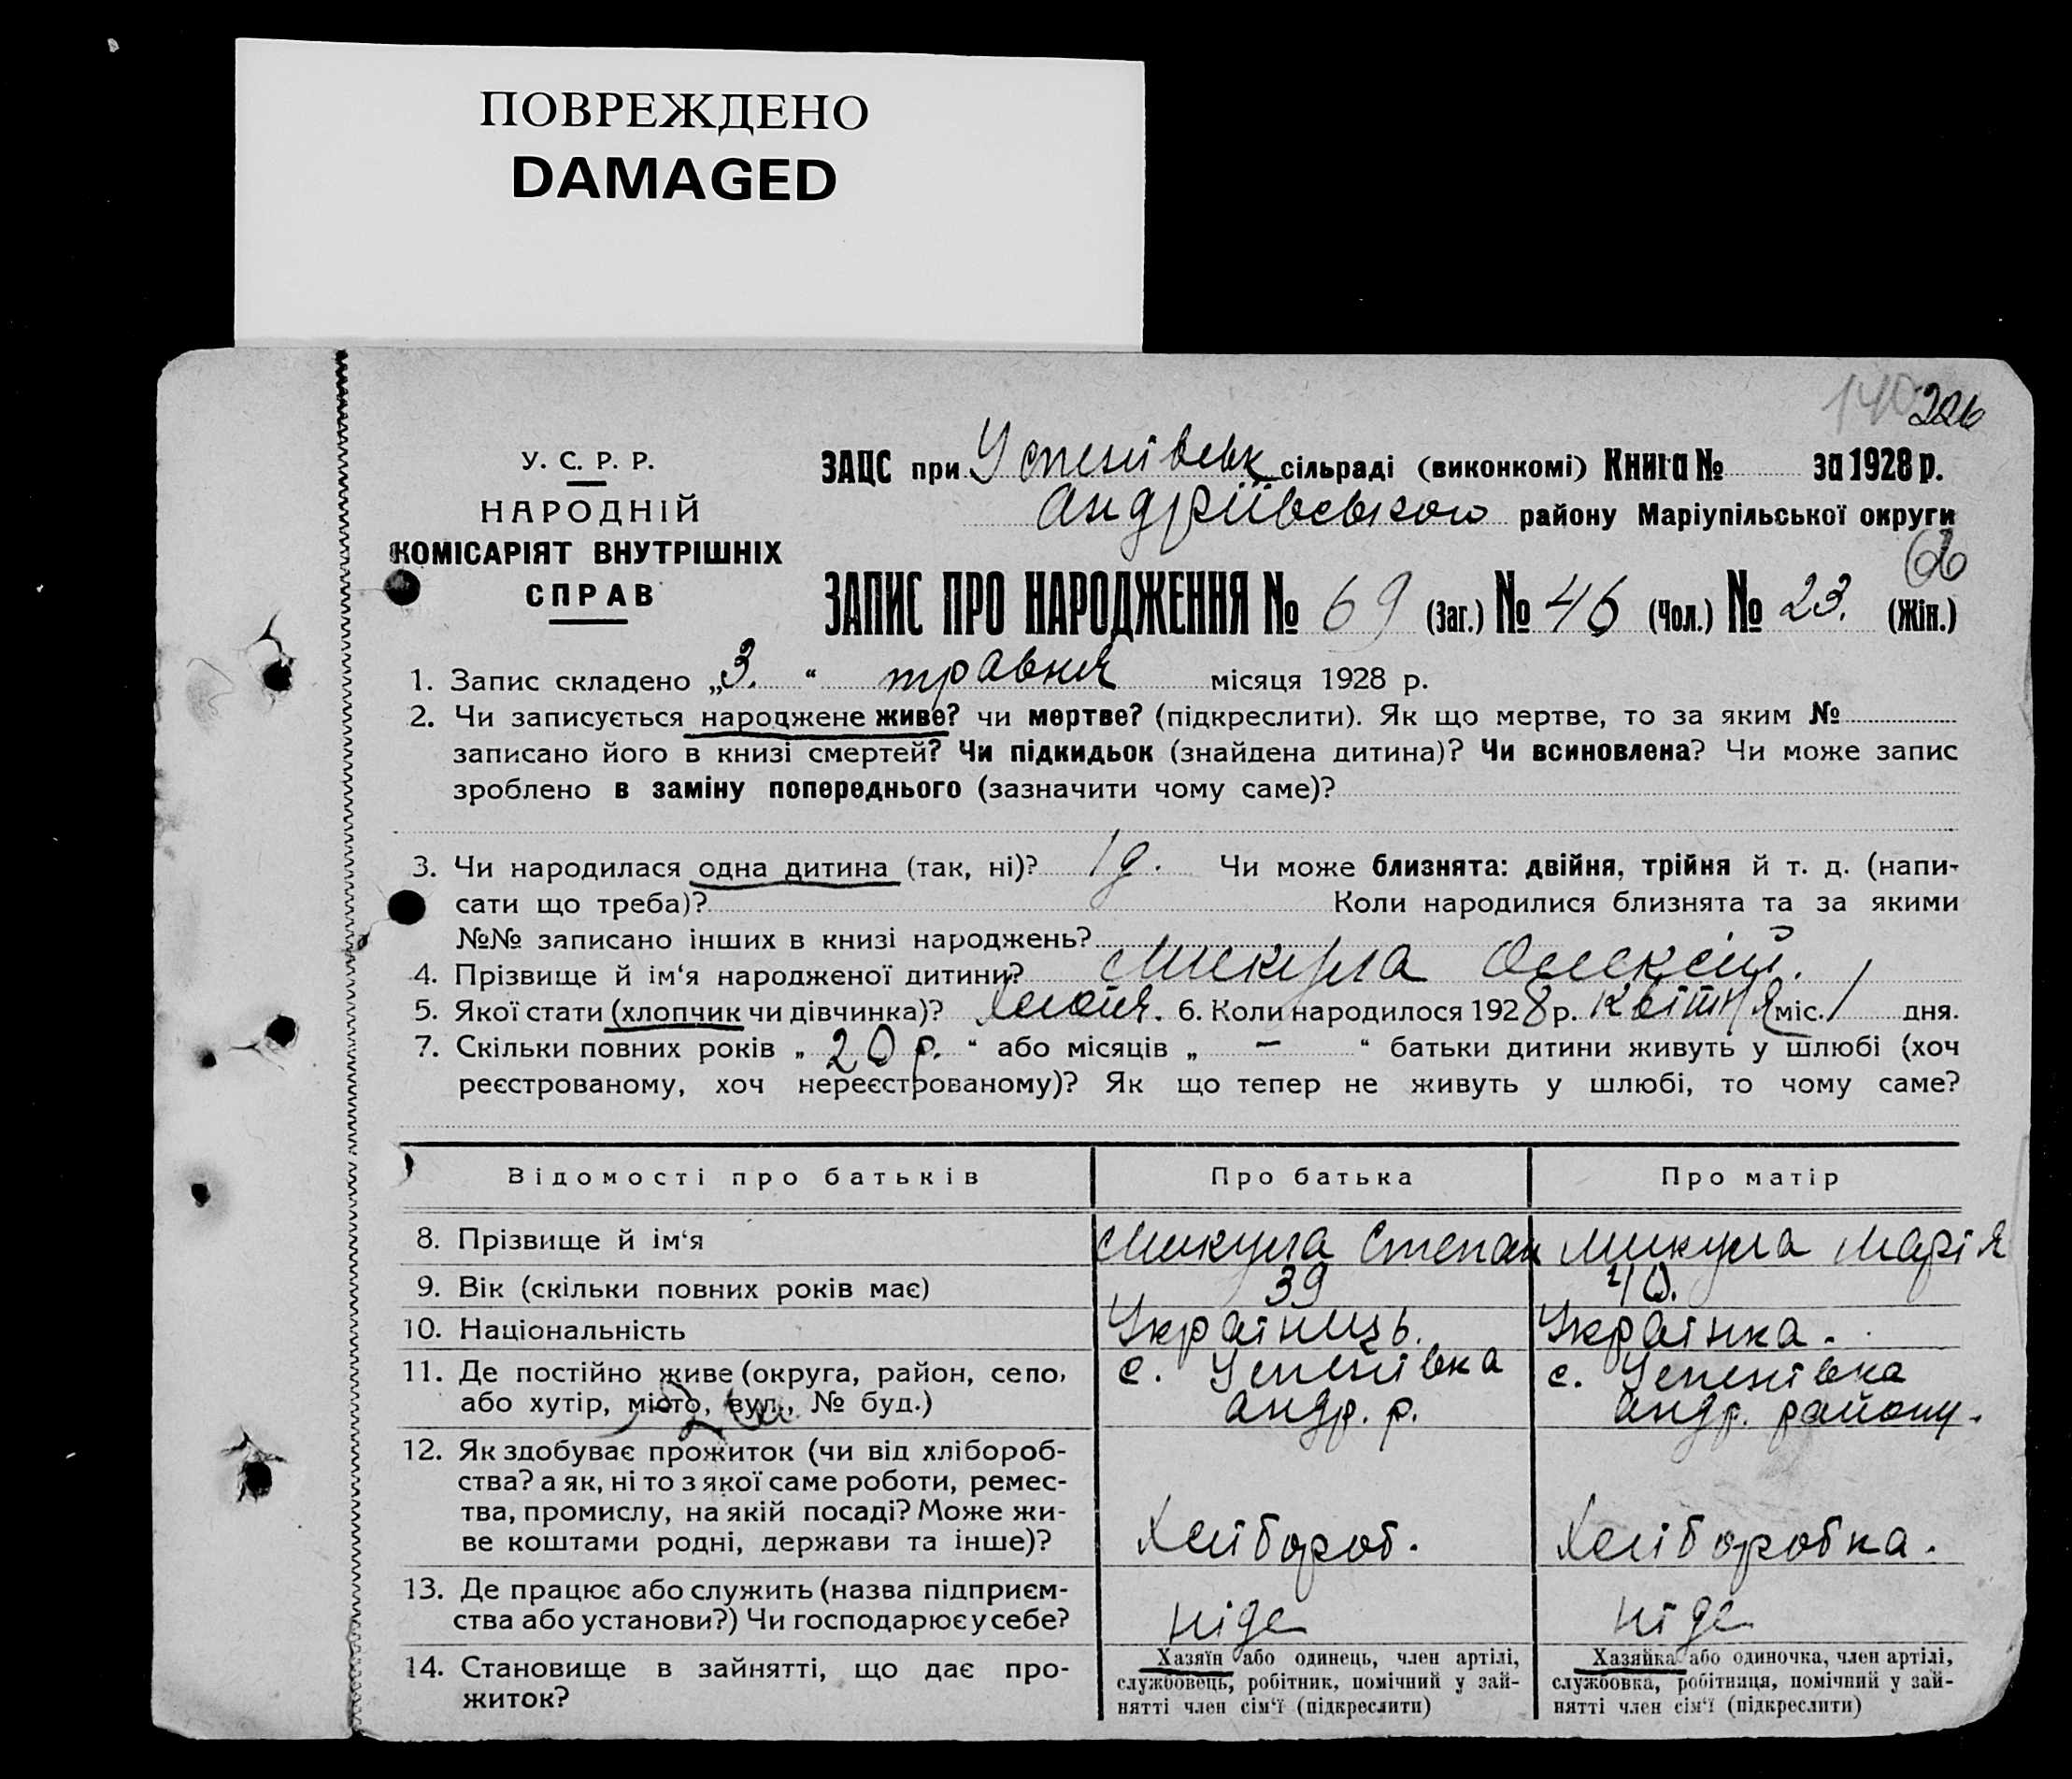 ПОВРЕЖДЕНО
DAMAGED
140 226
У. С. Р. Р.
НАРОДНІЙ
КОМІСАРІЯТ ВНУТРІШНІХ
СПРАВ
ЗАЦС при Успенівськ сільраді (виконкомі) Книга № за 1928 р.
Андріївського району Маріупільської округи
ЗАПИС ПРО НАРОДЖЕННЯ № 69 (Заг.) № 46 (Чол.) № 23. (Жін.)
1. Запис складено „3.“ травня місяця 1928 р.
2. Чи записується народжене живе? чи мертве? (підкреслити). Як що мертве, то за яким №
записано його в книзі смертей? Чи підкидьок (знайдена дитина)? Чи всиновлена? Чи може запис
зроблено в заміну попереднього (зазначити чому саме)?
3. Чи народилася одна дитина (так, ні)? 1 д. Чи може близнята: двійня, трійня й т. д. (напи-
сати що треба)? Коли народилися близнята та за якими
№№ записано інших в книзі народжень?
4. Прізвище й ім‘я народженої дитини? Микула Олексій.
5. Якої стати (хлопчик чи дівчинка)? Хлопч. 6. Коли народилося 1928 р. квітня міс. 1 дня.
7. Скільки повних років „ 20 р. “ або місяців „ – “ батьки дитини живуть у шлюбі (хоч
реєстрованому, хоч нереєстрованому)? Як що тепер не живуть у шлюбі, то чому саме?
Відомості про батьків Про батька Про матір
8. Прізвище й ім‘я Микула Степан Микула Марія
9. Вік (скільки повних років має) 39 40.
10. Національність Українць. Українка.
11. Де постійно живе (округа, район, село, с. Успенівка с. Успенівка
або хутір, місто, вул., № буд.) Андр. р. Андр. району.
12. Як здобуває прожиток (чи від хлібороб-
ства? а як, ні то з якої саме роботи, ремес-
тва, промислу, на якій посаді? Може жи-
ве коштами родні, держави та інше)? Хлібороб. Хліборобка.
13. Де працює або служить (назва підприєм-
ства або установи?) Чи господарює у себе? ніде ніде
14. Становище в зайнятті, що дає про-
житок?
Хазяїн або одинець, член артілі,
службовець, робітник, помічний у зай-
нятті член сім‘ї (підкреслити)
Хазяйка або одиночка, член артілі,
службовка, робітниця, помічний у зай-
нятті член сім‘ї (підкреслити)